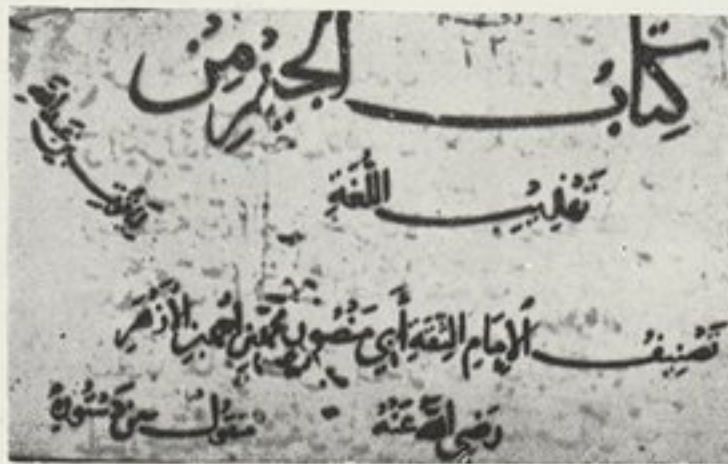 ٢٢
كِتَابُ الجِيْمِ مِنْ
تَهْذِيبِ اللُّغَةِ
تَصْنِيفُ الْإِمَامِ الثِّقَةِ أَبِي مَنْصُورٍ مُحَمَّدِ بْنِ أَحْمَدَ بْنِ الْأَزْهَرِ
رَضِيَ اللهُ عَنْهُ منقول من